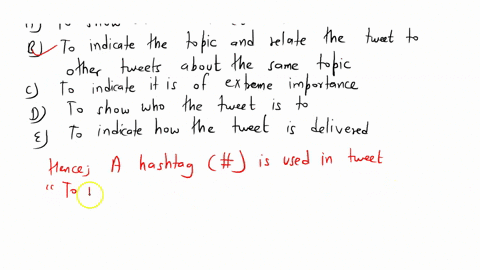 B) To indicate the topic and relate the tweet to
other tweets about the same topic
C) To indicate it is of extreme importance
D) To show who the tweet is to
E) To indicate how the tweet is delivered
Hence; A hashtag (#) is used in tweet
"To